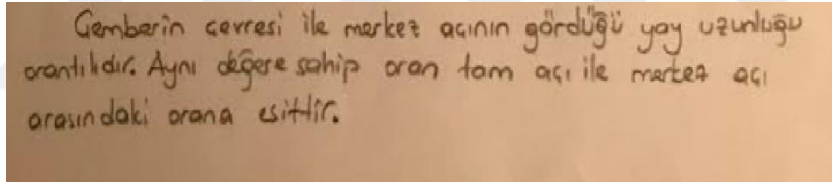 Çemberin çevresi ile merkez açının gördüğü yay uzunluğu
orantılıdır. Aynı değere sahip oran tam açı ile merkez açı
arasındaki orana eşittir.